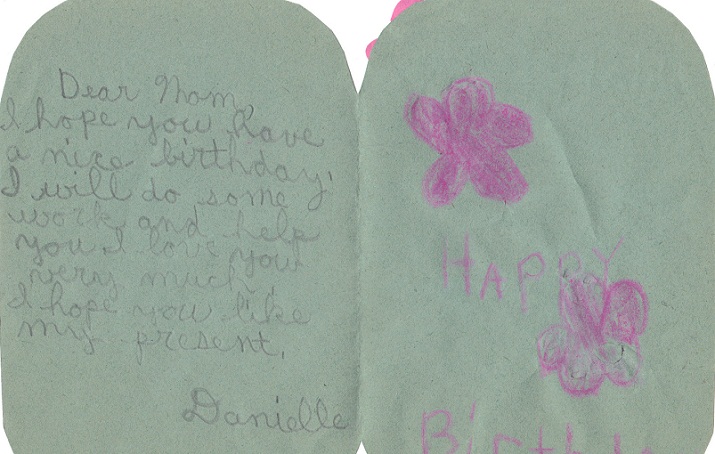 Dear Mom,
I hope you have
a nice birthday.
I will do some
work and help
you I love you
very much.
I hope you like
my present.
Danielle
HAPPY
Birthd